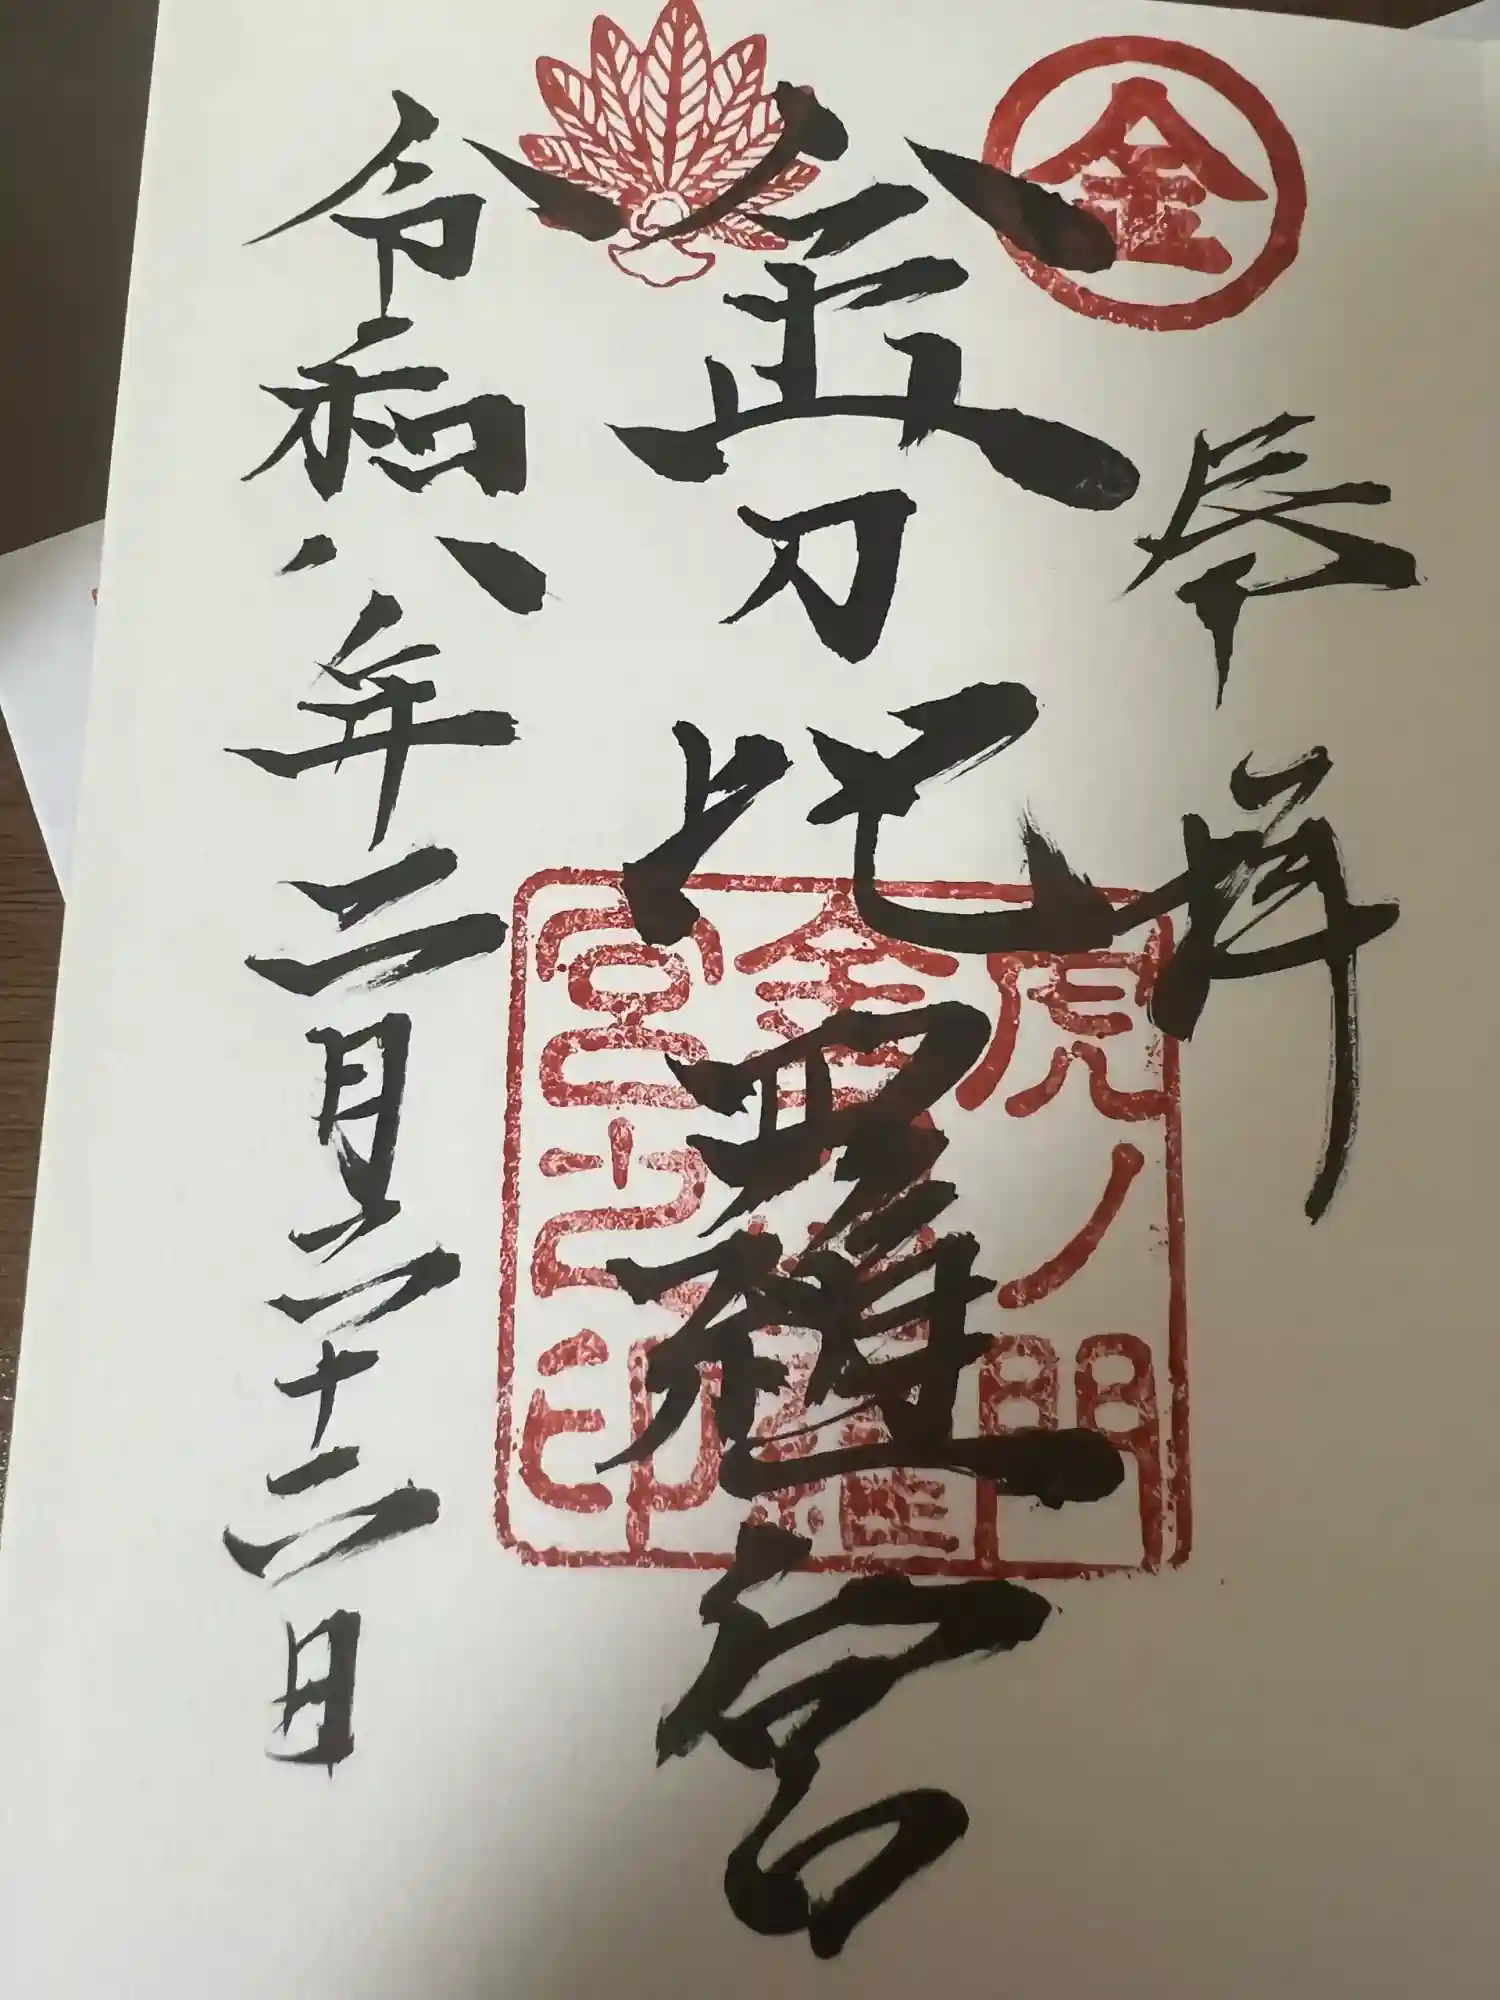 金
奉拝
金刀比羅宮
虎ノ門
金刀比羅
宮之印
令和八年二月二十二日